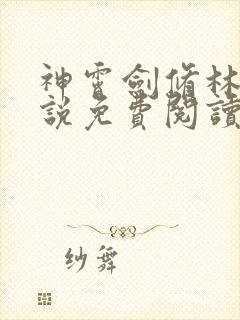 神霄劍脩林
說免費閱讀
紗舞